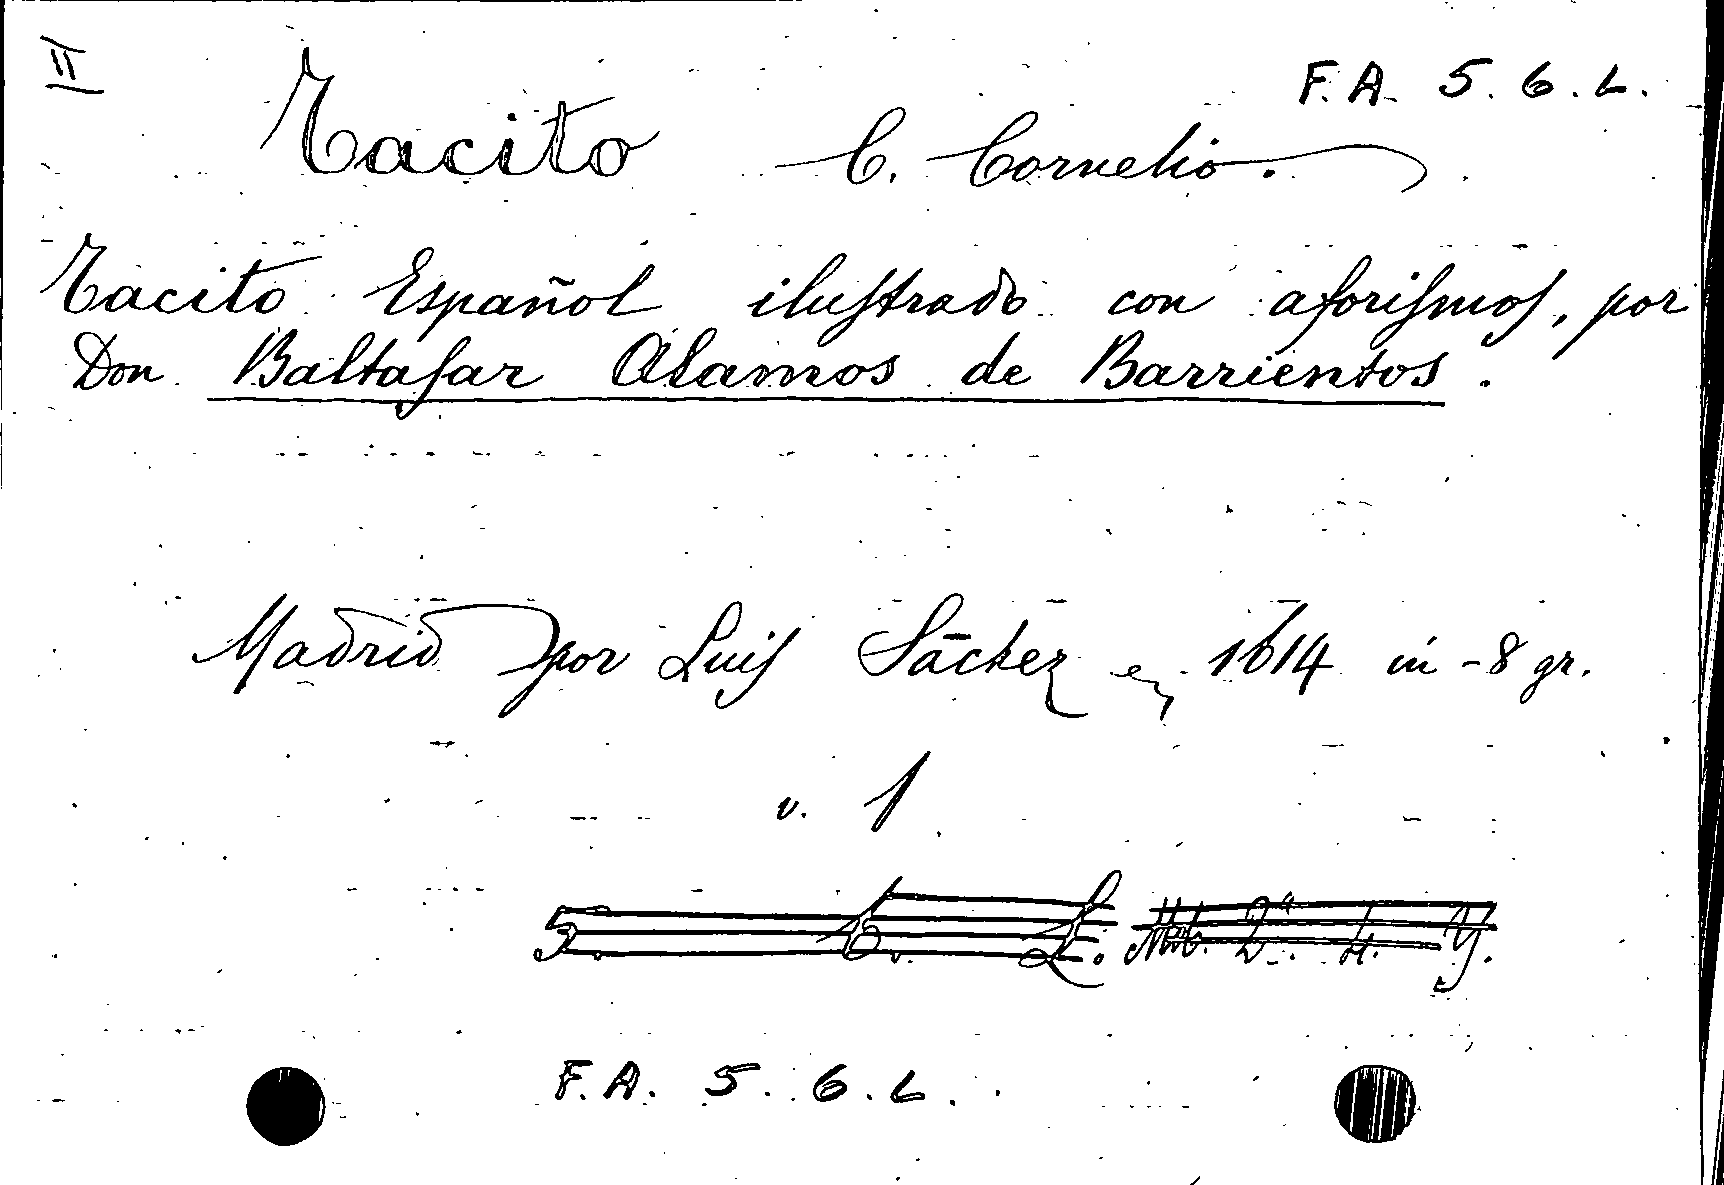 II
F. A. 5. 6. L.
Tacito C. Cornelio.
Tacito Español iluſtrado con aforiſmoſ, por
Don Baltaſar Alamos de Barrientos.
Madrid por Luiſ Sāchez en 1614 in-8 gr.
v. 1
5. 6. L. 2ª. 4. Y.
F. A. 5. 6. L.